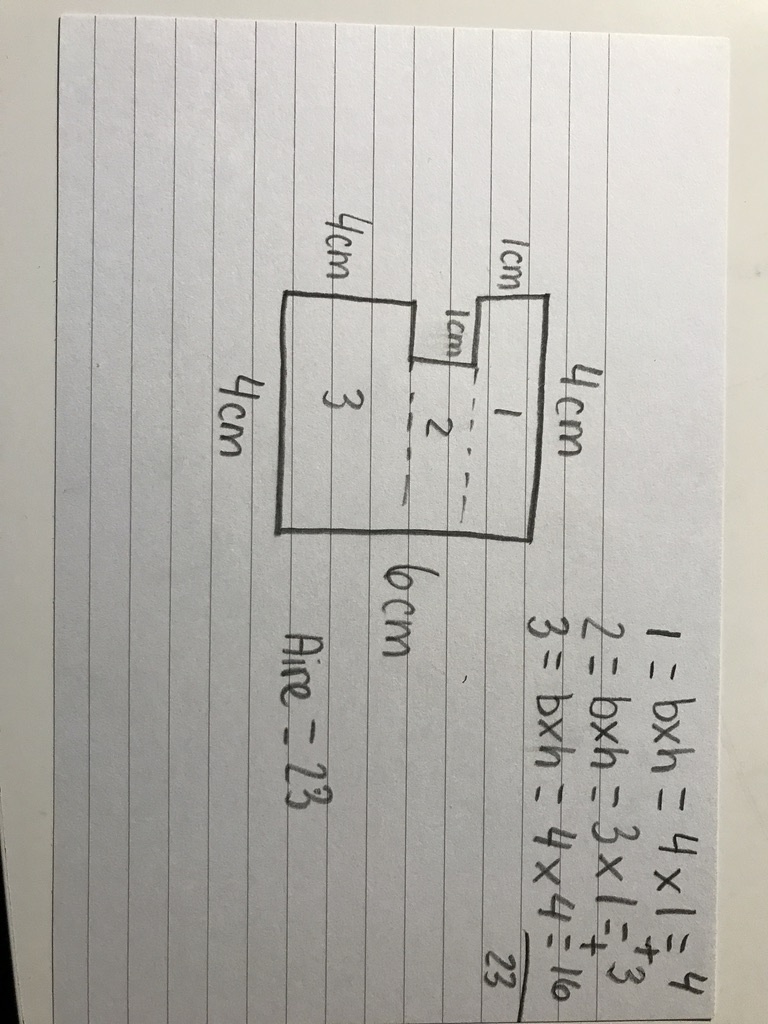 1 = bxh = 4 x 1 = 4
+
2 = bxh = 3 x 1 = 3
+
3 = bxh = 4 x 4 = 16
23
4cm
1cm
1
1cm
2
6cm
4cm
3
4cm
Aire = 23